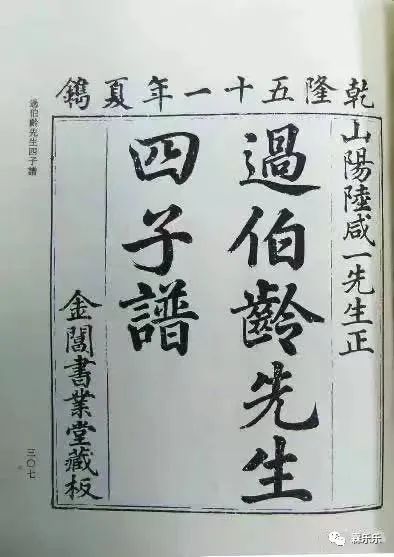 乾隆五十一年夏鐫
山陽陸咸一先生正
過伯齡先生
四子譜
金閶書業堂藏板
過伯齡先生四子譜
三〇七
霖乐乐